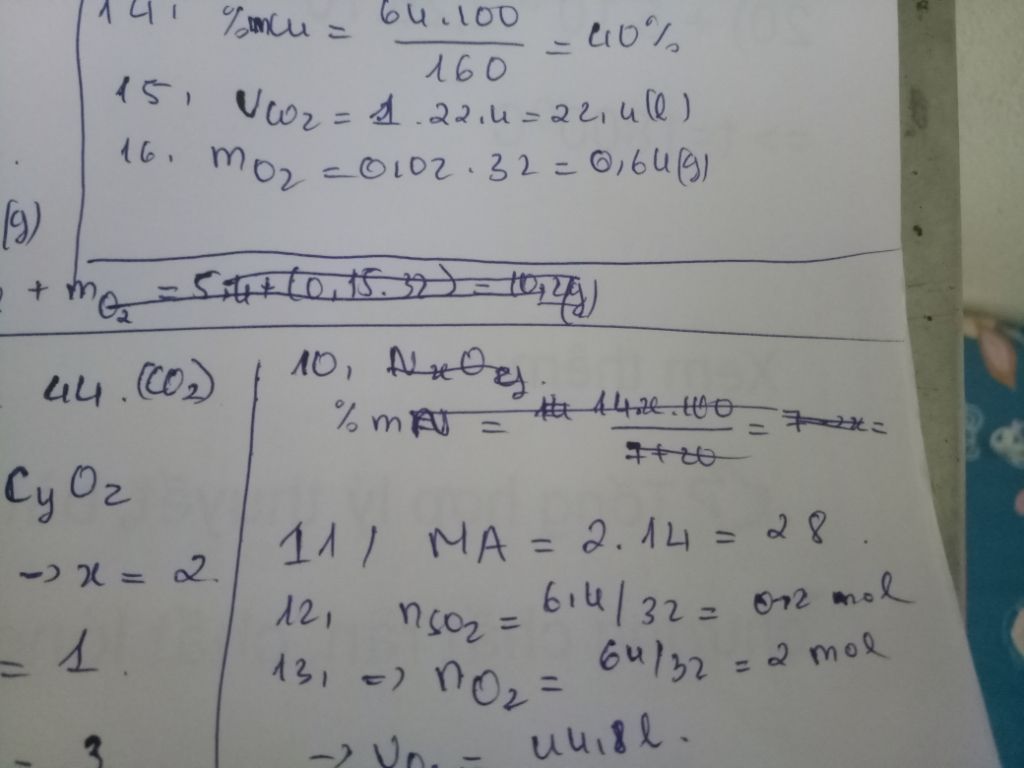 14, %mCu = 64.100 / 160 = 40%
15, VCO2 = 1.22.4 = 22,4(l)
16. mO2 = 0,02.32 = 0,64(g)
(g)
+ mO2 = 5,4+(0,15.32) = 10,2(g)
44.(CO2)
CyO2
-> x = 2
= 1.
= 3
10, NxOy.
%mN = 14.x.100 / 7+20 = =
11, MA = 2.14 = 28.
12, nSO2 = 6,4/32 = 0,2 mol
13, => nO2 = 64/32 = 2 mol
-> VO2 = 44,8l.